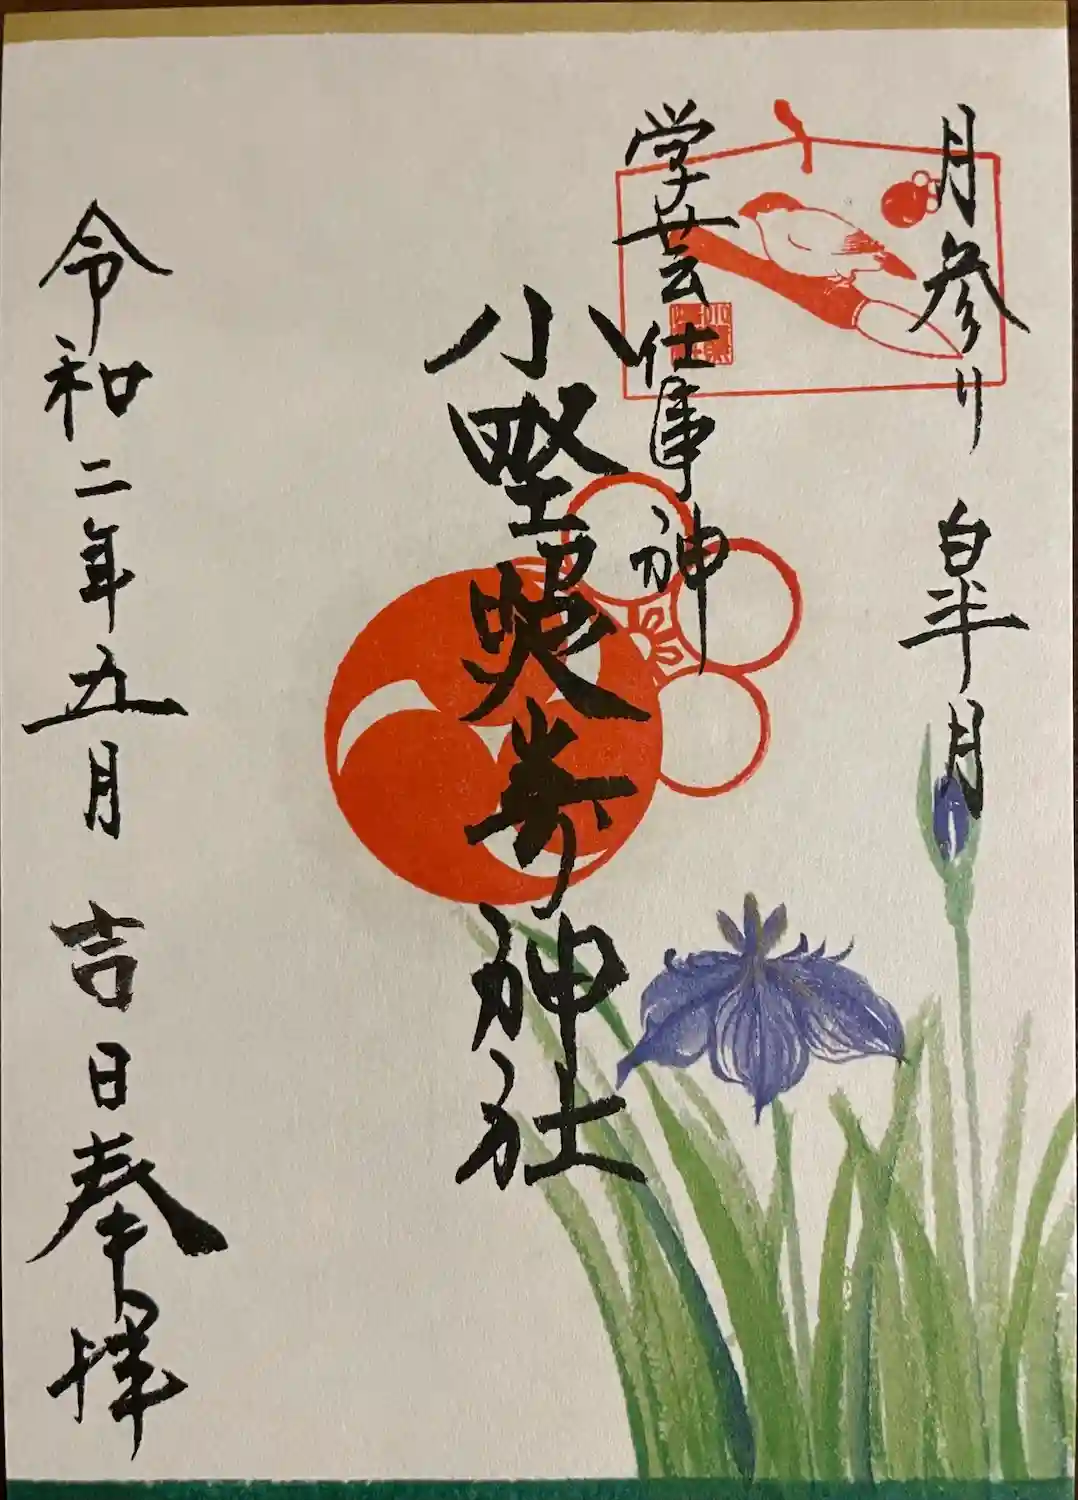 月参り 皐月
学芸仕事神
小野照崎神社
令和二年五月 吉日奉拝